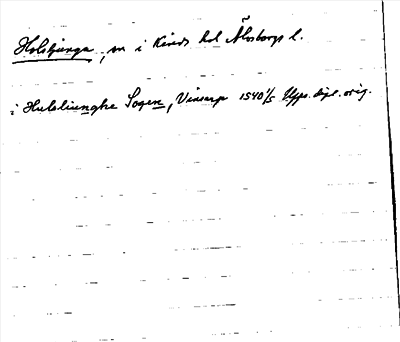 Holsljunga, sn i Kinds hd Älvsborgs l.
i Hulsliunghe Sogen, Vinsarp 1540 1/5 Upps. dipl. orig.